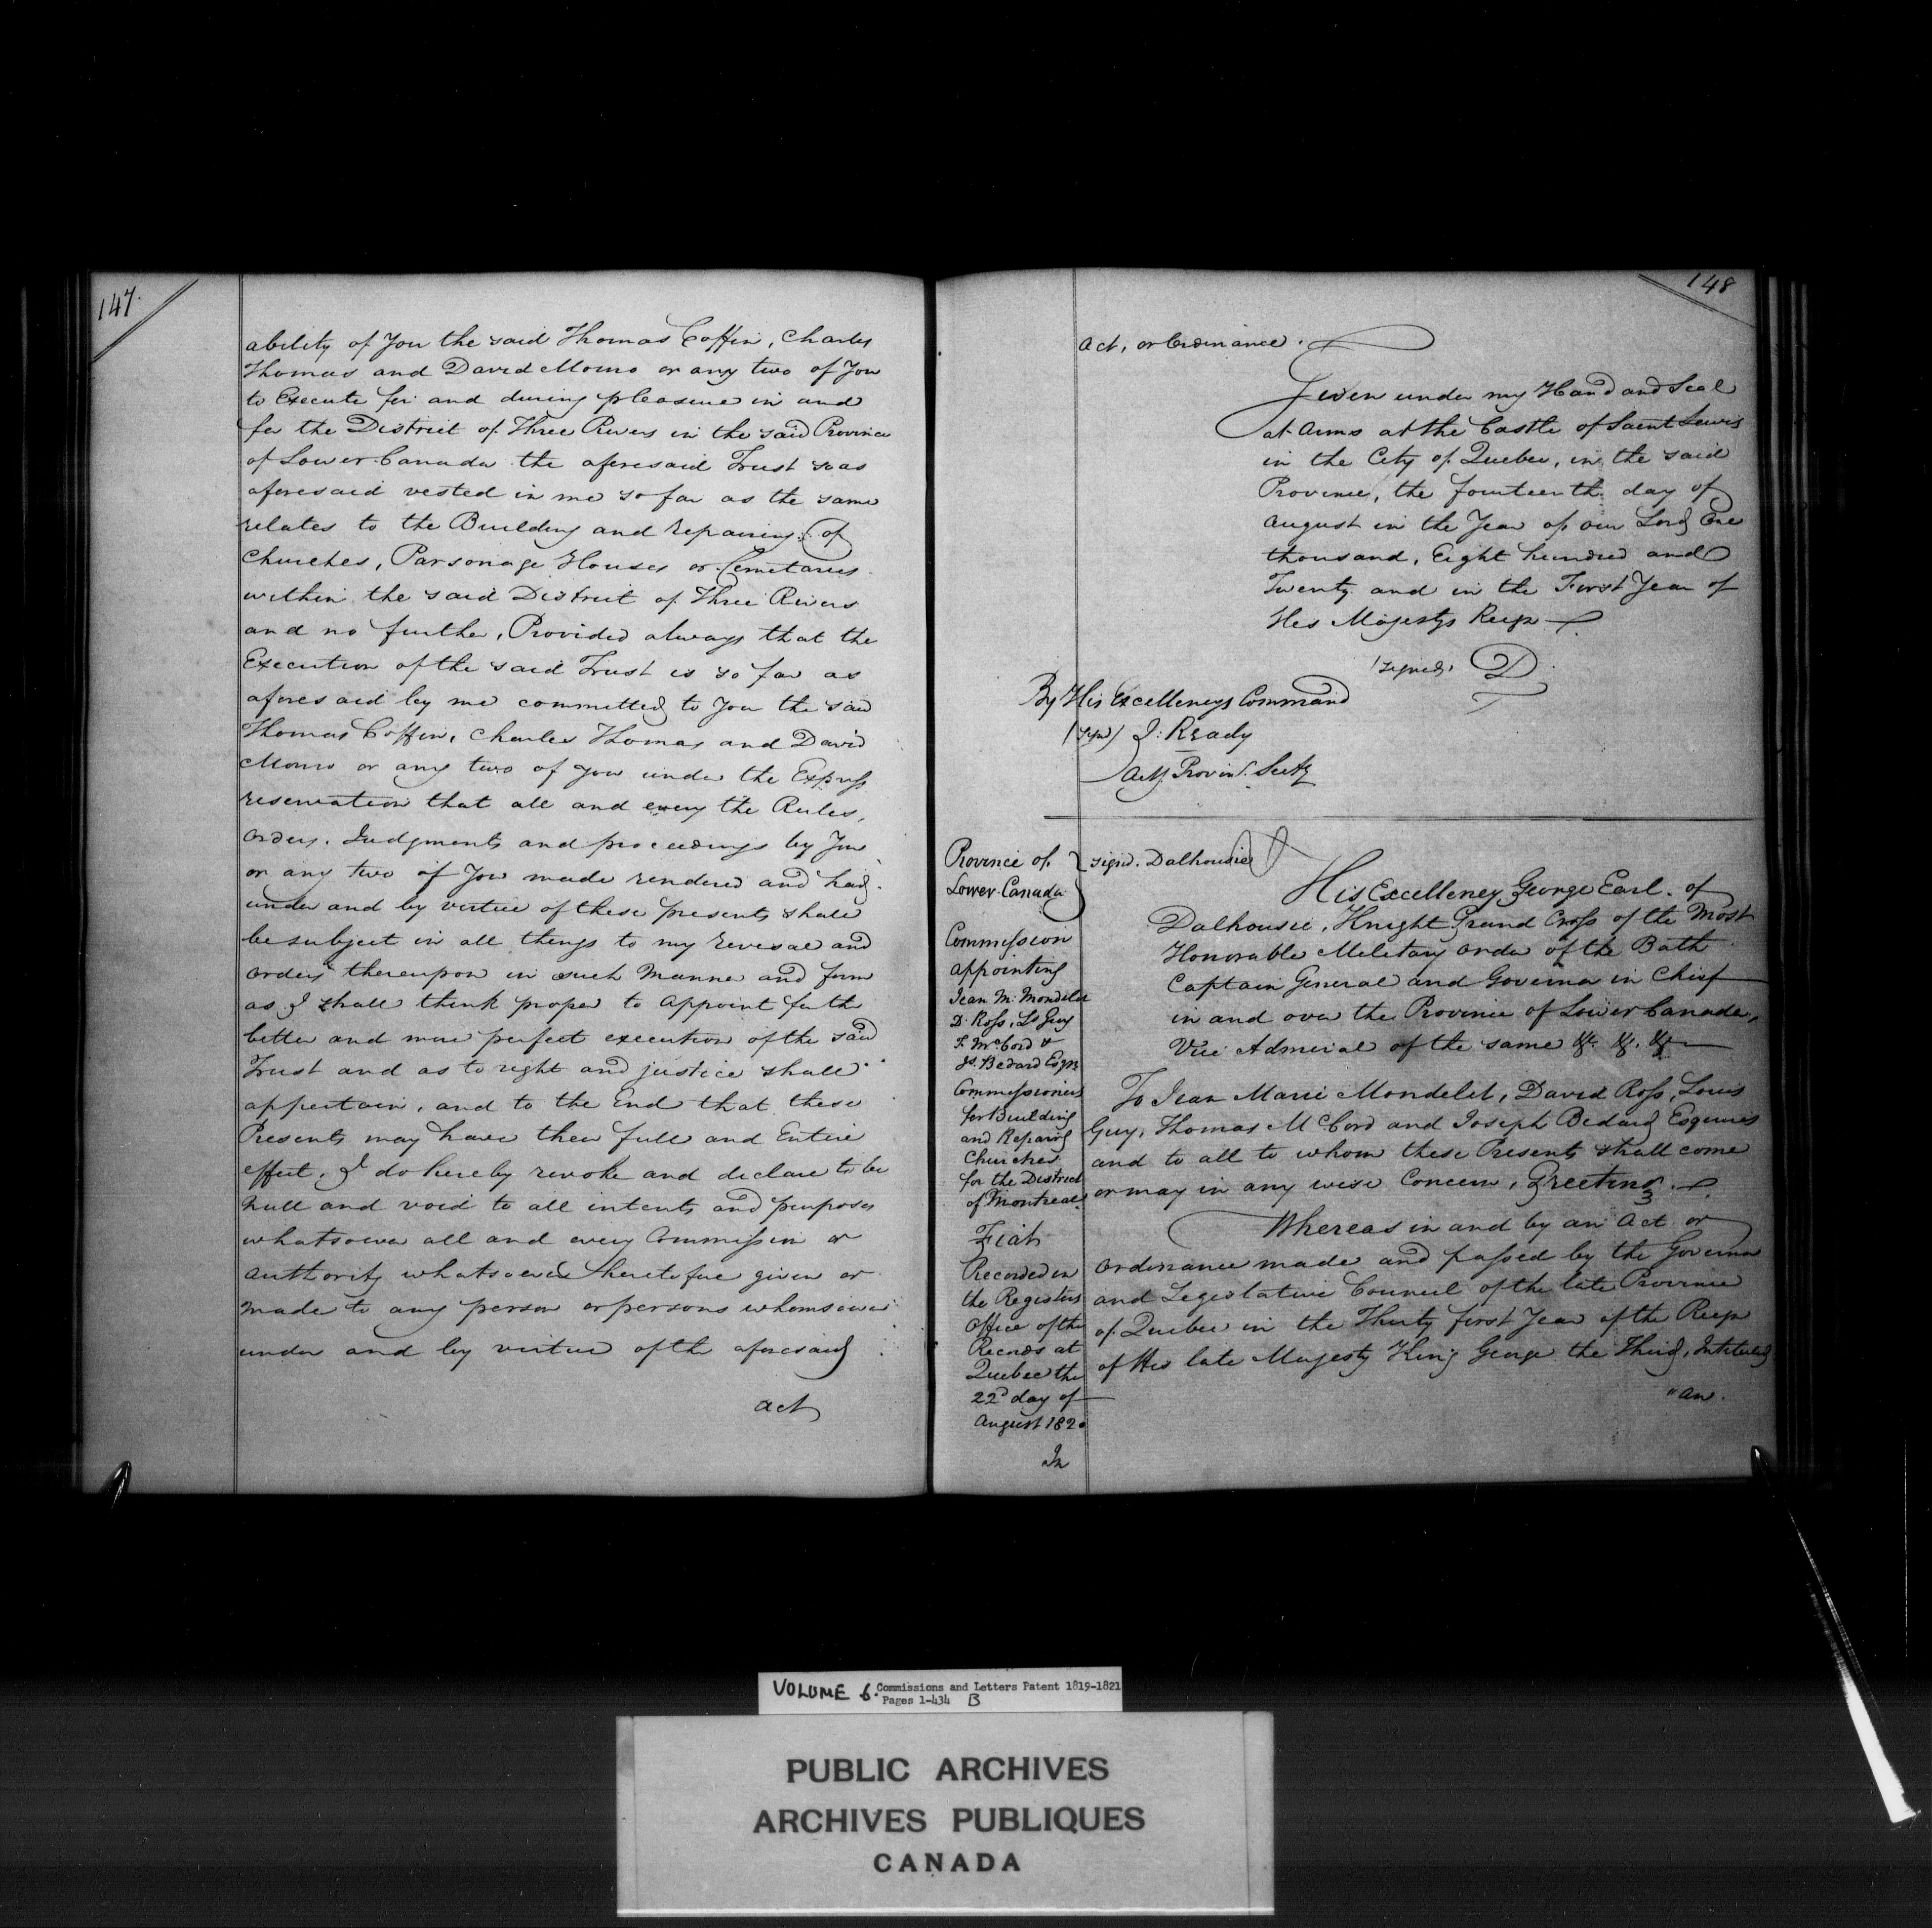 147.
ability of You the said Thomas Coffin, Charles
Thomas and David Monro or any two of You
to Execute for and during pleasure in and
for the District of Three Rivers in the said Province
of Lower Canada the aforesaid Trust so as
aforesaid vested in me so far as the same
relates to the Building and repairing of
Churches, Parsonage Houses or Cemetaries
within the said District of Three Rivers
and no further, Provided always that the
Execution of the said Trust is so far as
aforesaid by me committed to You the said
Thomas Coffin, Charles Thomas and David
Monro or any two of you under the Express
reservation that all and every the Rules,
Orders, Judgments and proceedings by You
or any two of You made rendered and had
under and by virtue of these presents shall
be subject in all things to my revisal and
orders thereupon in such Manner and form
as I shall think proper to Appoint for the
better and more perfect execution of the said
Trust and as to right and justice shall
appertain, and to the End that these
Presents may have their full and Entire
effect, I do hereby revoke and declare to be
Null and void to all intents and purposes
whatsoever all and every Commission or
Authority whatsoever heretofore given or
made to any person or persons whomsoever
under and by virtue of the aforesaid
act
148
Act, or Ordinance.
Given under my Hand and Seal
at Arms at the Castle of Saint Lewis
in the City of Quebec, in the said
Province, the fourteenth day of
August in the Year of our Lord One
thousand, Eight hundred and
Twenty and in the First Year of
His Majestys Reign
(signed) D
By His Excellencys Command
(sign) J: Ready
Actg Provinl. Secty
Province of
Lower Canada
Commission
appointing
Jean M. Mondelet
D. Ross, Ls Guy
T. McCord &
Js. Bedard Esqrs
Commissioners
for Building
and Repairing
Churches
for the District
of Montreal.
Fiat
Recorded in
the Registers
Office of the
Records at
Quebec the
22d day of
August 1820
In
signd. Dalhousie
His Excellency George Earl of
Dalhousie, Knight Grand Cross of the Most
Honorable Military Order of the Bath
Captain General and Governor in Chief
in and over the Province of Lower Canada,
Vice Admiral of the same &c. &c. &c
To Jean Marie Mondelet, David Ross, Louis
Guy, Thomas McCord and Joseph Bedard Esquires
and to all to whom these Presents shall come
or may in any wise Concern, Greeting.
Whereas in and by an Act or
Ordinance made and passed by the Governor
and Legislative Council of the late Province
of Quebec in the Thirty first Year of the Reign
of His late Majesty King George the Third, Intituled
"An
VOLUME 6. Commissions and Letters Patent 1819-1821
Pages 1-434 B
PUBLIC ARCHIVES
ARCHIVES PUBLIQUES
CANADA